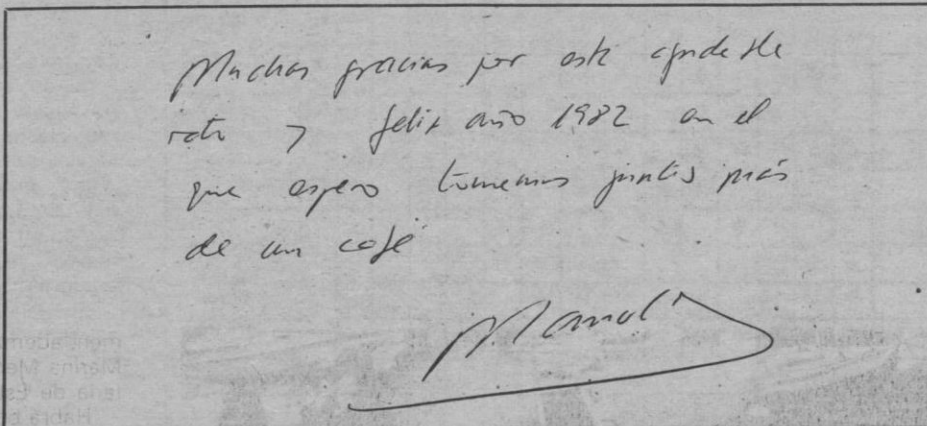 Muchas gracias por este agradable
rato y feliz año 1982 en el
que espero tomemos juntos más
de un café
Manoli